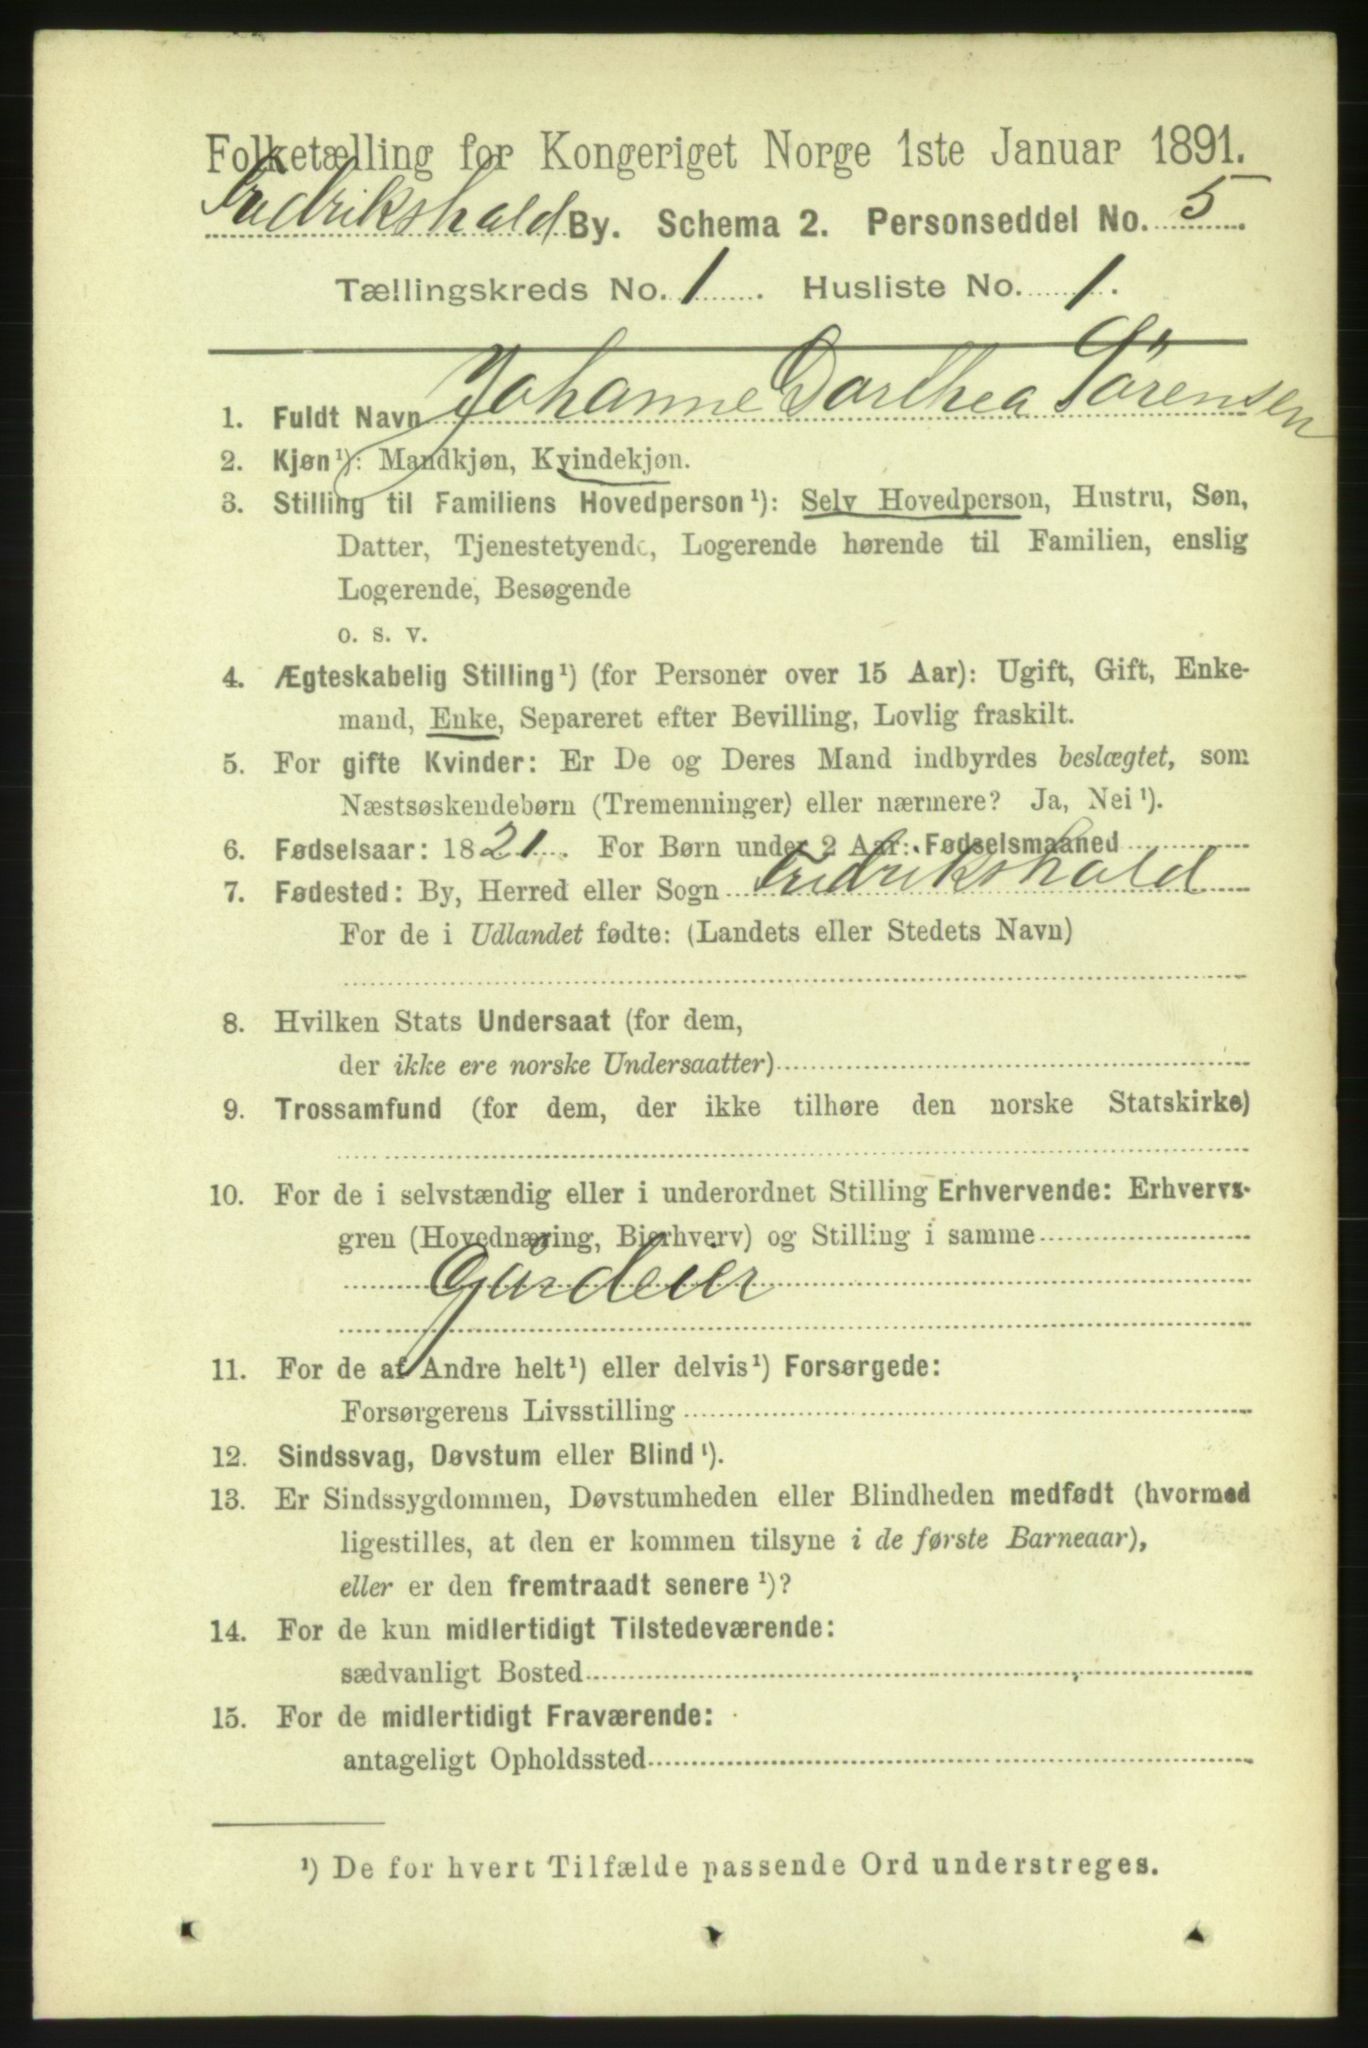 Folketælling for Kongeriget Norge 1ste Januar 1891.
Fredrikshald By. Schema 2. Personseddel No. 5
Tællingskreds No. 1. Husliste No. 1.
1. Fuldt Navn Johanne Dorthea Sörensen
2. Kjøn¹): Mandkjøn, Kvindekjøn.
3. Stilling til Familiens Hovedperson¹): Selv Hovedperson, Hustru, Søn,
Datter, Tjenestetyende, Logerende hørende til Familien, enslig
Logerende, Besøgende
o. s. v.
4. Ægteskabelig Stilling¹) (for Personer over 15 Aar): Ugift, Gift, Enke-
mand, Enke, Separeret efter Bevilling, Lovlig fraskilt.
5. For gifte Kvinder: Er De og Deres Mand indbyrdes beslægtet, som
Næstsøskendebørn (Tremenninger) eller nærmere? Ja, Nei¹).
6. Fødselsaar: 1821. For Børn under 2 Aar: Fødselsmaaned
7. Fødested: By, Herred eller Sogn Fredrikshald
For de i Udlandet fødte: (Landets eller Stedets Navn)
8. Hvilken Stats Undersaat (for dem,
der ikke ere norske Undersaatter)
9. Trossamfund (for dem, der ikke tilhøre den norske Statskirke)
10. For de i selvstændig eller i underordnet Stilling Erhvervende: Erhvervs-
gren (Hovednæring, Bierhverv) og Stilling i samme
Gårdeier
11. For de af Andre helt¹) eller delvis¹) Forsørgede:
Forsørgerens Livsstilling
12. Sindssvag, Døvstum eller Blind¹).
13. Er Sindssygdommen, Døvstumheden eller Blindheden medfødt (hvormed
ligestilles, at den er kommen tilsyne i de første Barneaar),
eller er den fremtraadt senere¹)?
14. For de kun midlertidigt Tilstedeværende:
sædvanligt Bosted
15. For de midlertidigt Fraværende:
antageligt Opholdssted
¹) De for hvert Tilfælde passende Ord understreges.